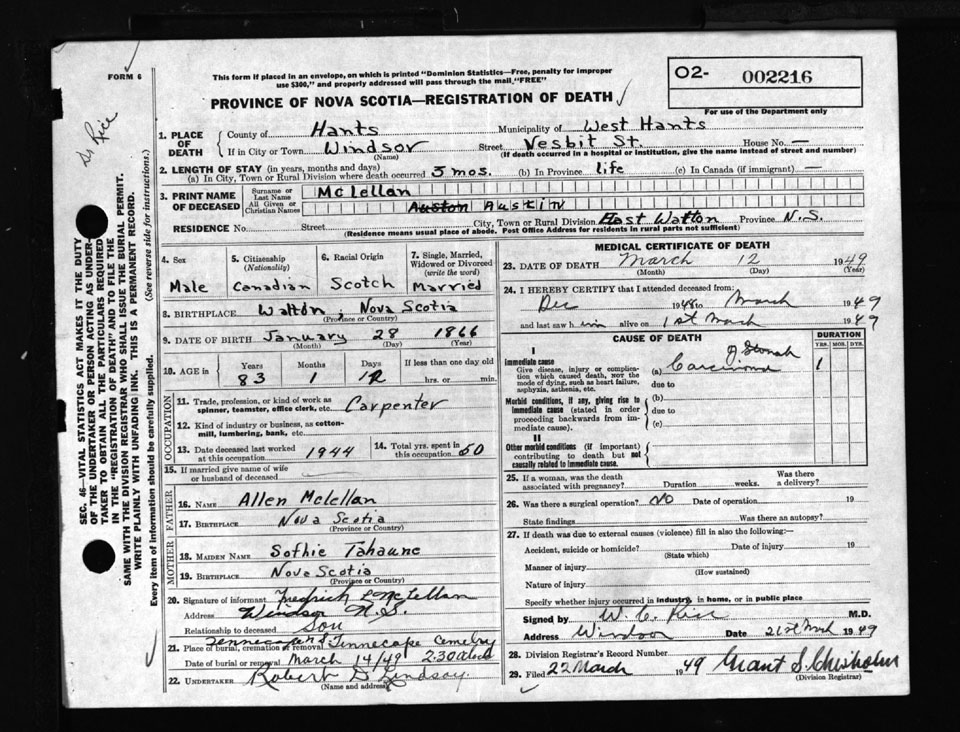 FORM 6
This form if placed in an envelope, on which is printed "Dominion Statistics—Free, penalty for improper
use $300," and properly addressed will pass through the mail, "FREE"
PROVINCE OF NOVA SCOTIA—REGISTRATION OF DEATH
O2- 002216
For use of the Department only
Dr Rice
SEC. 46—VITAL STATISTICS ACT MAKES IT THE DUTY
OF THE UNDERTAKER OR PERSON ACTING AS UNDER-
TAKER TO OBTAIN ALL THE PARTICULARS REQUIRED
IN THE "REGISTRATION OF DEATH" AND TO FILE THE
SAME WITH THE DIVISION REGISTRAR WHO SHALL ISSUE THE BURIAL PERMIT.
WRITE PLAINLY WITH UNFADING INK. THIS IS A PERMANENT RECORD.
Every item of information should be carefully supplied. (See reverse side for instructions.)
1. PLACE OF DEATH
County of Hants Municipality of West Hants
If in City or Town Windsor Street Nesbit St. House No. —
(Name) (If death occurred in a hospital or institution, give the name instead of street and number)
2. LENGTH OF STAY (in years, months and days)
(a) In City, Town or Rural Division where death occurred 5 mos. (b) In Province life (c) In Canada (if immigrant) —
3. PRINT NAME OF DECEASED
Surname or Last Name Mclellan
All Given or Christian Names Auston Austin
RESIDENCE No. Street City, Town or Rural Division East Walton Province N.S.
(Residence means usual place of abode. Post Office Address for residents in rural parts not sufficient)
4. Sex Male
5. Citizenship (Nationality) Canadian
6. Racial Origin Scotch
7. Single, Married, Widowed or Divorced (write the word) Married
8. BIRTHPLACE Walton, Nova Scotia
(Province or Country)
9. DATE OF BIRTH January 28 1866
(Month) (Day) (Year)
10. AGE in Years 83 Months 1 Days 12 If less than one day old hrs. or min.
OCCUPATION
11. Trade, profession, or kind of work as
spinner, teamster, office clerk, etc. Carpenter
12. Kind of industry or business, as cotton-
mill, lumbering, bank, etc.
13. Date deceased last worked at this occupation 1944
14. Total yrs. spent in this occupation 50
15. If married give name of wife
or husband of deceased
FATHER
16. NAME Allen Mclellan
17. BIRTHPLACE Nova Scotia
(Province or Country)
MOTHER
18. MAIDEN NAME Sothie
19. BIRTHPLACE Nova Scotia
(Province or Country)
20. Signature of informant Fredrick L McLellan
Address Windsor N.S.
Relationship to deceased Son
21. Place of burial, cremation or removal Tennecape Cemetry
Date of burial or removal March 14/49 2.30
22. UNDERTAKER Robert D Lindsay
(Name and address)
MEDICAL CERTIFICATE OF DEATH
23. DATE OF DEATH March 12 1949
(Month) (Day) (Year)
24. I HEREBY CERTIFY that I attended deceased from:
Dec 1948 to March 1949
and last saw h im alive on 1st March 1949
CAUSE OF DEATH
DURATION
YRS. MOS. DYS.
I
Immediate cause
Give disease, injury or complica-
tion which caused death, NOT the
mode of dying, such as heart failure,
asphyxia, asthenia, etc.
(a) Carcinoma of Stomach 1
due to
Morbid conditions, if any, giving rise to
immediate cause (stated in order
proceeding backwards from im-
mediate cause).
(b)
due to
(c)
II
Other morbid conditions (if important)
contributing to death but not
causally related to immediate cause.
25. If a woman, was the death
associated with pregnancy? Duration weeks. Was there a delivery?
26. Was there a surgical operation? No Date of operation 19
State findings Was there an autopsy?
27. If death was due to external causes (violence) fill in also the following:—
Accident, suicide or homicide? Date of injury 19
(State which)
Manner of injury
(How sustained)
Nature of injury
Specify whether injury occurred in industry, in home, or in public place
Signed by W. C. Rice M.D.
Address Windsor Date 21st March 1949
28. Division Registrar's Record Number
29. Filed 22 March 1949 Grant S. Chisholm
(Division Registrar)